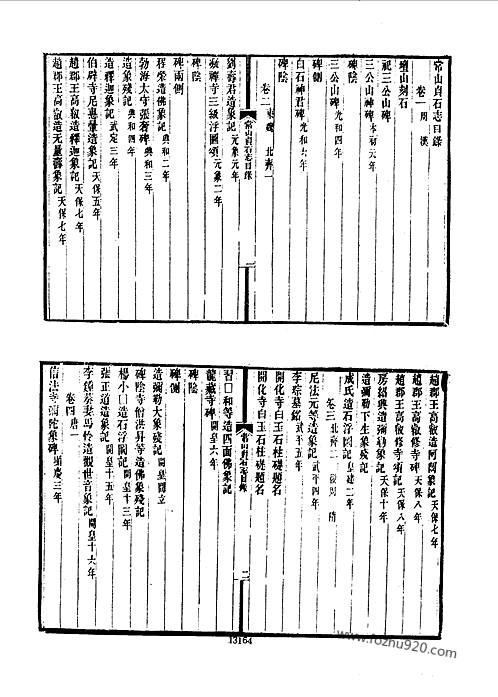 常山貞石志目錄
卷一 周 漢
壇山刻石
祀三公山碑
三公山神碑 本初元年
碑陰
三公山碑 光和四年
碑側
白石神君碑 光和六年
碑陰
卷二 東魏 北齊一
常山貞石志目錄
一
劉壽君造象記 元象元年
凝禪寺三級浮圖頌 元象二年
碑陰
碑兩側
程榮造佛象記 興和二年
勃海太守張奢碑 興和三年
造象殘記 興和四年
造釋迦象記 武定三年
伯辟寺尼惠暈造象記 天保五年
趙郡王高叡造釋迦象記 天保七年
趙郡王高叡造無量壽象記 天保七年
趙郡王高叡造阿閦象記 天保七年
趙郡王高叡修寺碑 天保八年
趙郡王高叡修寺頌記 天保八年
房紹興造彌勒象記 天保十年
造彌勒下生象殘記
卷三 北齊二 後周 隋
成氏造石浮圖記 皇建二年
尼法元等造象記 武平四年
李琮墓銘 武平五年
開化寺白玉石柱礎題名
開化寺白玉石柱礎題名
常山貞石志目錄
二
習□和等造四面佛象記
龍藏寺碑 開皇六年
碑陰
碑側
造彌勒大象殘記 開皇□立
碑陰寺僧洪昇等造佛象殘記
楊小□造石浮圖記 開皇十三年
張正道造象記 開皇十五年
李鍾葵妻馬怜造觀世音象記 開皇十六年
卷四 唐一
信法寺彌陀象碑 顯慶三年
13164
www.fozhu920.com